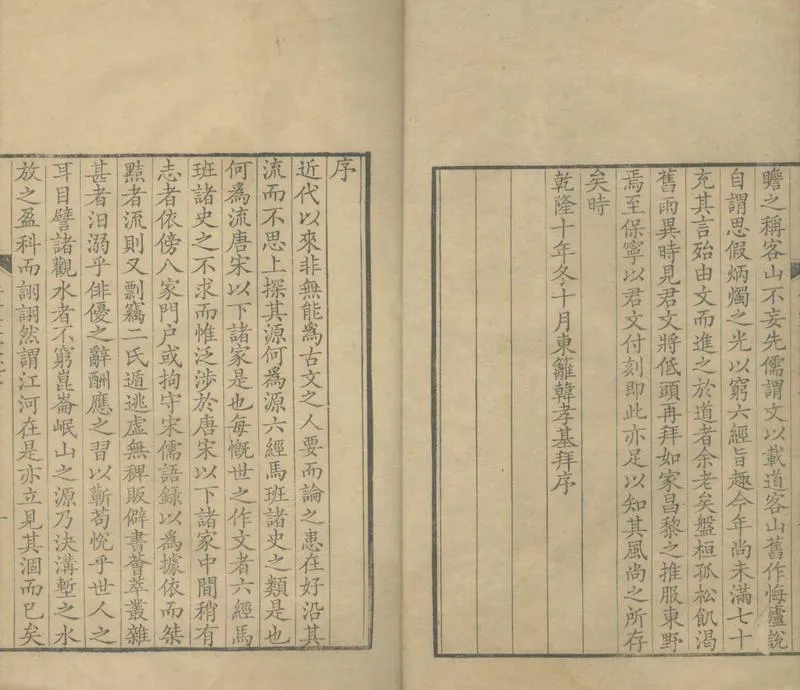 瞻之稱客山不妄先儒謂文以載道客山舊作悔廬說
自謂思假炳燭之光以窮六經旨趣今年尚未滿七十
充其言殆由文而進之於道者余老矣盤桓孤松飢渴
舊雨異時見君文將低頭再拜如家昌黎之推服東野
焉至保寧以君文付刻即此亦足以知其風尚之所存
矣時
乾隆十年冬十月東籬韓孝基拜序
序
近代以來非無能為古文之人要而論之患在好沿其
流而不思上探其源何為源六經馬班諸史之類是也
何為流唐宋以下諸家是也每慨世之作文者六經馬
班諸史之不求而惟泛涉於唐宋以下諸家中間稍有
志者依傍八家門户或拘守宋儒語錄以為據依而桀
黠者流則又剽竊二氏遁逃虛無稗販僻書薈萃叢雜
甚者汩溺乎俳優之辭酬應之習以蘄苟悅乎世人之
耳目譬諸觀水者不窮崑崙岷山之源乃決溝塹之水
放之盈科而詡詡然謂江河在是亦立見其涸而已矣